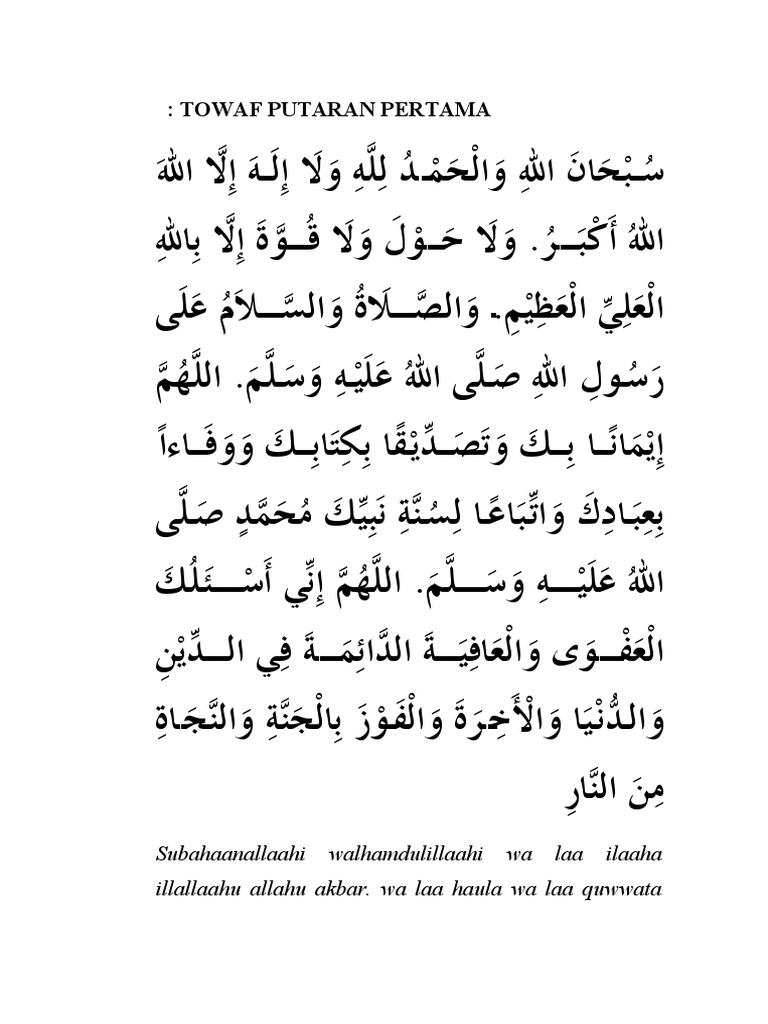 : TOWAF PUTARAN PERTAMA
سُبْحَانَ اللهِ وَالْحَمْدُ لِلَّهِ وَلَا إِلَـهَ إِلَّا اللهَ
اللهُ أَكْبَرُ. وَلَا حَوْلَ وَلَا قُوَّةَ إِلَّا بِاللهِ
الْعَلِيِّ الْعَظِيْمِ. وَالصَّلَاةُ وَالسَّلاَمُ عَلَى
رَسُولِ اللهِ صَلَّى اللهُ عَلَيْهِ وَسَلَّمَ. اللَّهُمَّ
إِيْمَانًا بِكَ وَتَصَدِّيْقًا بِكِتَابِكَ وَوَفَاءاً
بِعِبَادِكَ وَاتِّبَاعًا لِسُنَّةِ نَبِيِّكَ مُحَمَّدٍ صَلَّى
اللهُ عَلَيْهِ وَسَلَّمَ. اللَّهُمَّ إِنِّي أَسْئَلُكَ
الْعَفْوَى وَالْعَافِيَةَ الدَّائِمَةَ فِي الدِّيْنِ
وَالدُّنْيَا وَالْأَخِرَةَ وَالْفَوْزَ بِالْجَنَّةِ وَالنَّجَاةِ
مِنَ النَّارِ
Subahaanallaahi walhamdulillaahi wa laa ilaaha
illallaahu allahu akbar. wa laa haula wa laa quwwata